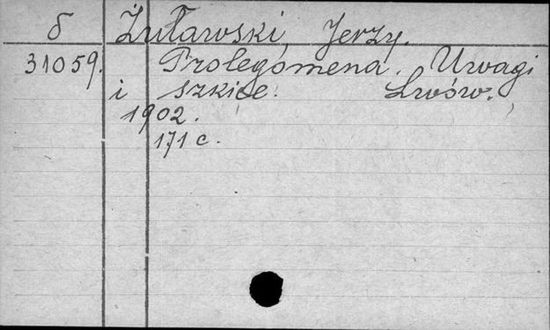 б Żuławski, Jerzy.
31059. Prolegomena. Uwagi
i szkice. Lwów.
1902.
171 c.